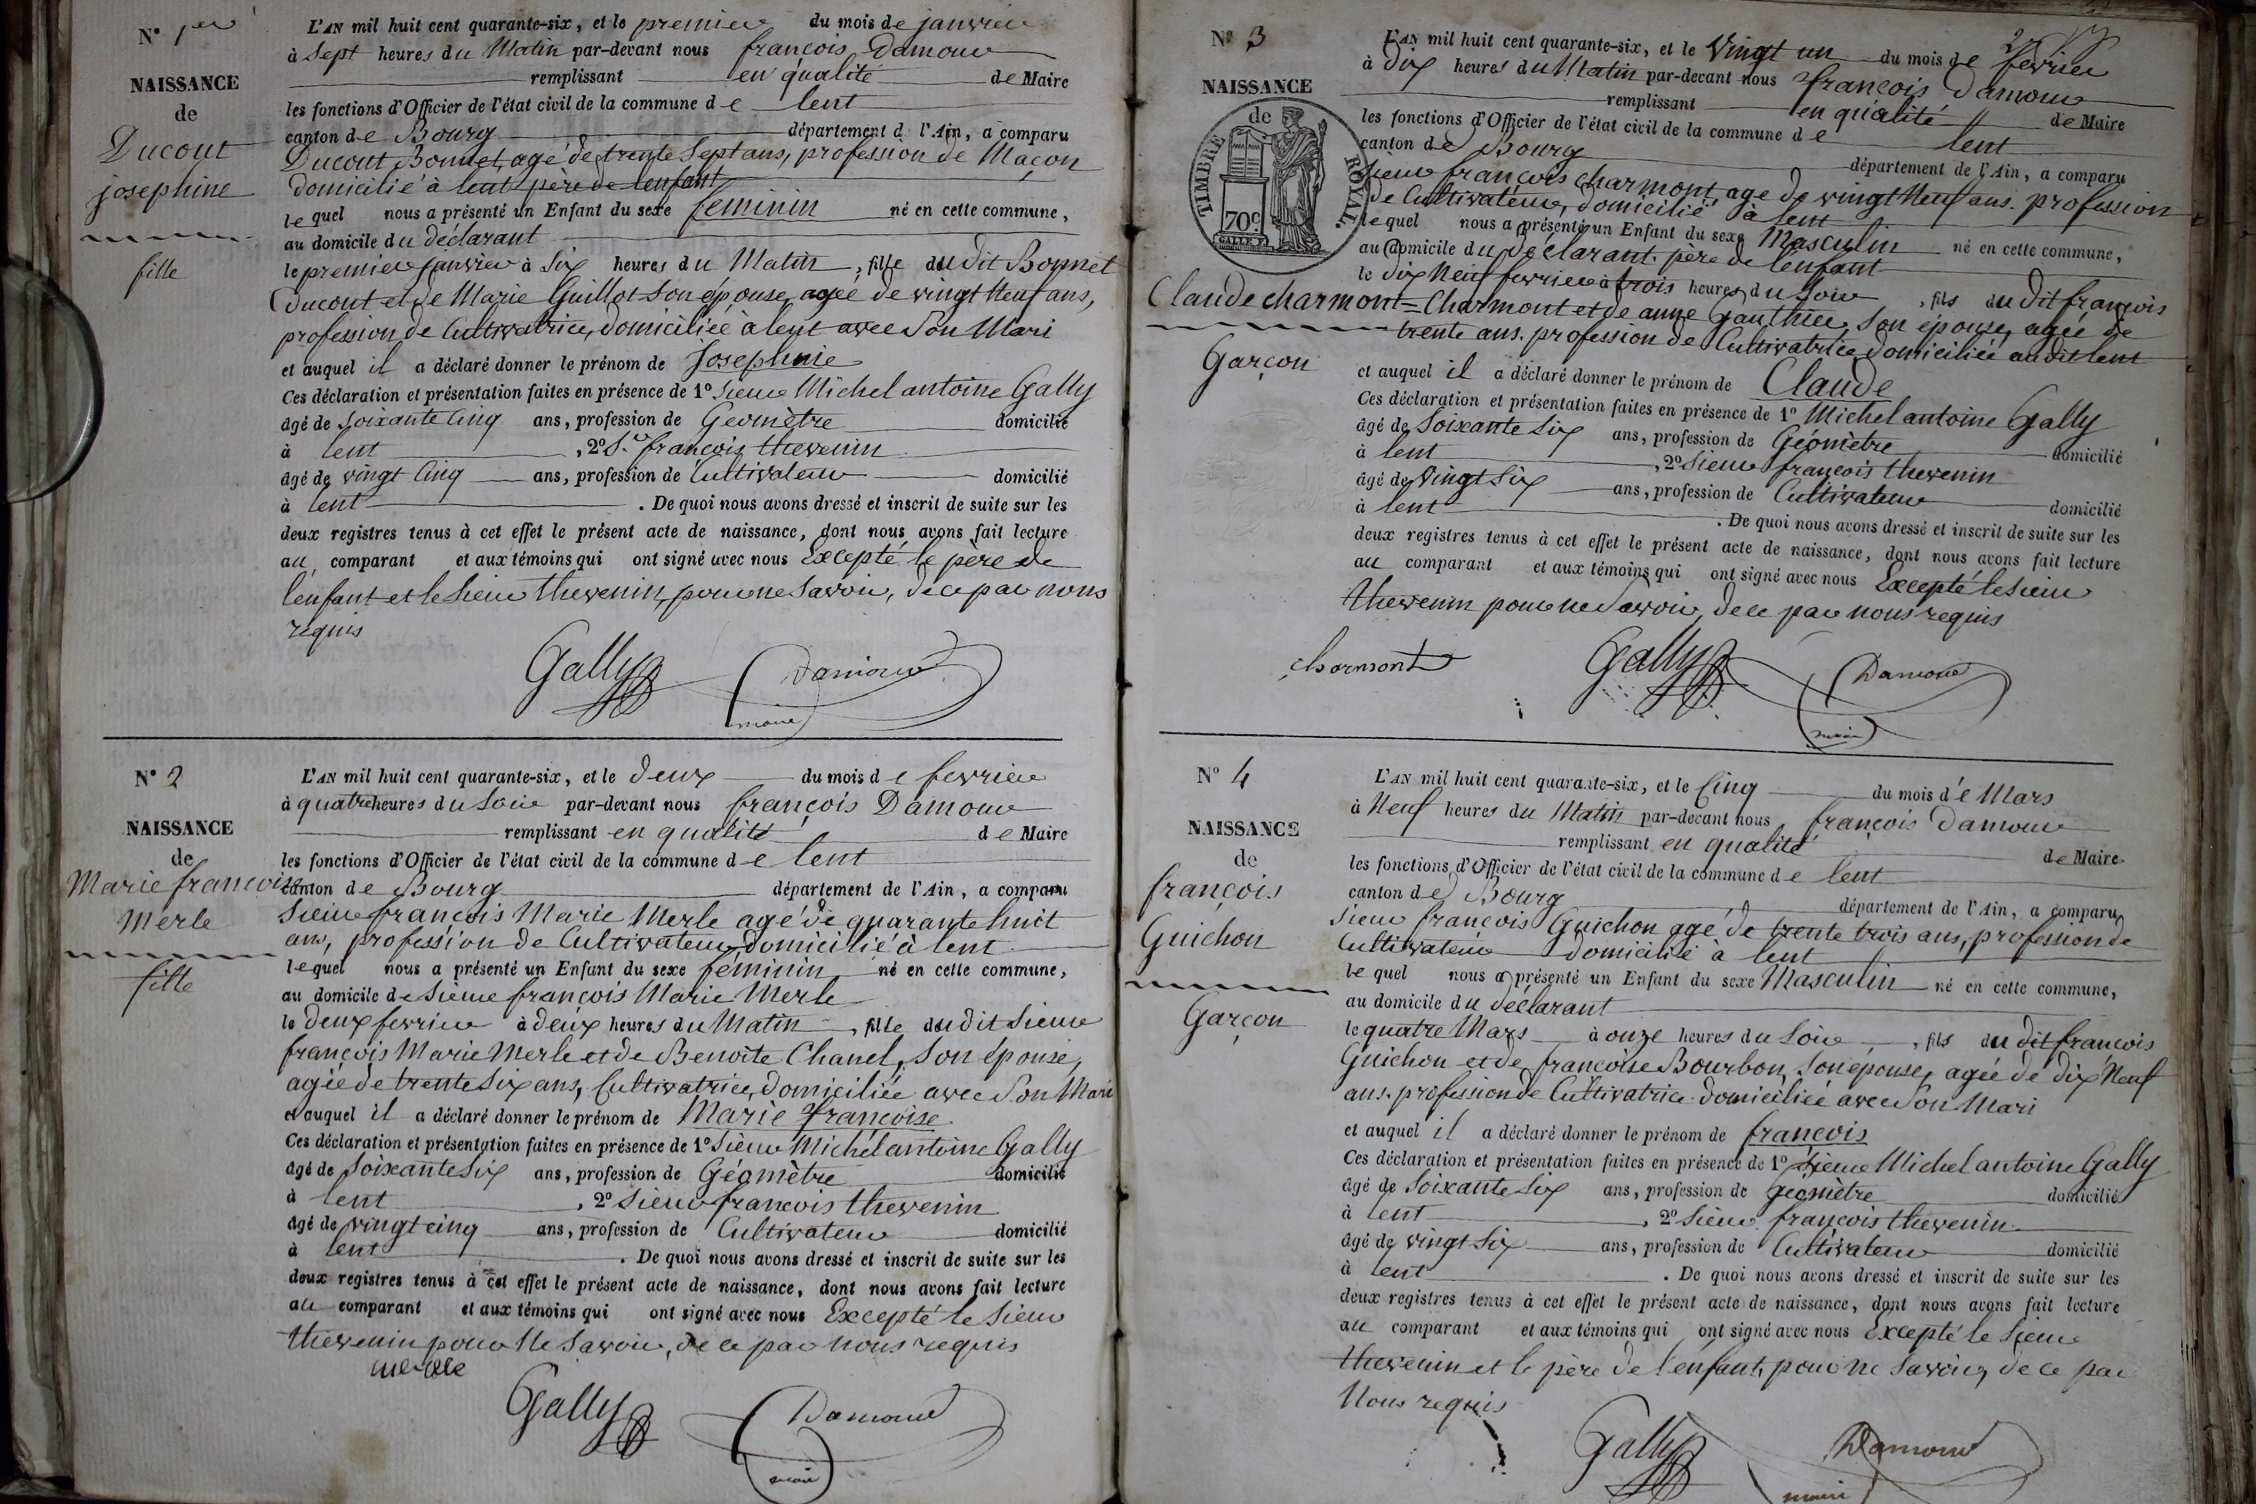 N° 1er
NAISSANCE
de
Ducout
josephine
fille
L'AN mil huit cent quarante-six, et le premier du mois de janvier
à sept heures du Matin par-devant nous françois Damour
remplissant en qualité de Maire
les fonctions d'Officier de l'état civil de la commune de lent
canton de Bourg département d l'Ain, a comparu
Ducout Bonnet, agé de trente Sept ans, profession de Maçon
domicilié à lent père de lenfant
lequel nous a présenté un Enfant du sexe féminin né en cette commune,
au domicile du déclarant
le premier janvier à Six heures du Matin, fille du dit Bonnet
Ducout et de Marie Guillot son épouse, agée de vingt Neuf ans,
profession de Cultivatrice, domiciliée à lent avec Son Mari
et auquel il a déclaré donner le prénom de Josephine
Ces déclaration et présentation faites en présence de 1° Sieur Michel antoine Gally
âgé de Soixante Cinq ans, profession de Géomètre domicilié
à lent, 2° Sr françois thevenin
âgé de vingt Cinq ans, profession de Cultivateur domicilié
à lent. De quoi nous avons dressé et inscrit de suite sur les
deux registres tenus à cet effet le présent acte de naissance, dont nous avons fait lecture
au comparant et aux témoins qui ont signé avec nous Excepté le père de
lenfant et le Sieur thevenin, pour ne Savoir, de ce par nous
requis
Gally Damour
maire
N° 2
NAISSANCE
de
Marie françoise
Merle
fille
L'AN mil huit cent quarante-six, et le deux du mois de fevrier
à quatre heures du Soir par-devant nous françois Damour
remplissant en qualité de Maire
les fonctions d'Officier de l'état civil de la commune de lent
canton de Bourg département de l'Ain, a comparu
Sieur françois Marie Merle agé de quarante huit
ans, profession de Cultivateur domicilié à lent
lequel nous a présenté un Enfant du sexe féminin né en cette commune,
au domicile de Sieur françois Marie Merle
le deux fevrier à deux heures du Matin, fille du dit Sieur
françois Marie Merle et de Benoite Chanel, Son épouse,
agée de trente Six ans, Cultivatrice, domiciliée avec Son Mari
et auquel il a déclaré donner le prénom de Marie françoise
Ces déclaration et présentation faites en présence de 1° Sieur Michel antoine Gally
âgé de Soixante Six ans, profession de Géomètre domicilié
à lent, 2° Sieur françois thevenin
âgé de vingt cinq ans, profession de Cultivateur domicilié
à lent. De quoi nous avons dressé et inscrit de suite sur les
deux registres tenus à cet effet le présent acte de naissance, dont nous avons fait lecture
au comparant et aux témoins qui ont signé avec nous Excepté le Sieur
thevenin pour Ne Savoir, de ce par nous requis
Gally Damour
maire
N° 3
NAISSANCE
de
TIMBRE ROYAL.
70c
Claude charmont
Garçon
L'AN mil huit cent quarante-six, et le Vingt un du mois de fevrier
à dix heures du Matin par-devant nous françois Damour
remplissant en qualité de Maire
les fonctions d'Officier de l'état civil de la commune de lent
canton de Bourg département de l'Ain, a comparu
Sieur françois charmont, agé de vingt Neuf ans. profession
de Cultivateur, domicilié à lent
lequel nous a présenté un Enfant du sexe Masculin né en cette commune,
au domicile du déclarant. père de lenfant
le dix Neuf fevrier à trois heures du Soir, fils du dit françois
Charmont et de anne Gauthier, Son épouse, agée de
trente ans. profession de Cultivatrice domiciliée audit lent
et auquel il a déclaré donner le prénom de Claude
Ces déclaration et présentation faites en présence de 1° Michel antoine Gally
âgé de Soixante Six ans, profession de Géomètre domicilié
à lent, 2° Sieur françois thevenin
âgé de Vingt Six ans, profession de Cultivateur domicilié
à lent. De quoi nous avons dressé et inscrit de suite sur les
deux registres tenus à cet effet le présent acte de naissance, dont nous avons fait lecture
au comparant et aux témoins qui ont signé avec nous Excepté le Sieur
thevenin pour ne Savoir, de ce par nous requis
charmont Gally Damour
maire
N° 4
NAISSANCE
de
françois
Guichon
Garçon
L'AN mil huit cent quarante-six, et le Cinq du mois de Mars
à Neuf heures du Matin par-devant nous françois Damour
remplissant en qualité de Maire
les fonctions d'Officier de l'état civil de la commune de lent
canton de Bourg département de l'Ain, a comparu
Sieur françois Guichon agé de trente trois ans, profession de
Cultivateur domicilié à lent
lequel nous a présenté un Enfant du sexe Masculin né en cette commune,
au domicile du déclarant
le quatre Mars à onze heures du Soir, fils du dit françois
Guichon et de françoise Bourbon, Son épouse, agée de dix Neuf
ans. profession de Cultivatrice domiciliée avec Son Mari
et auquel il a déclaré donner le prénom de françois
Ces déclaration et présentation faites en présence de 1° Sieur Michel antoine Gally
âgé de Soixante Six ans, profession de géomètre domicilié
à lent, 2° Sieur françois thevenin
âgé de vingt Six ans, profession de Cultivateur domicilié
à lent. De quoi nous avons dressé et inscrit de suite sur les
deux registres tenus à cet effet le présent acte de naissance, dont nous avons fait lecture
au comparant et aux témoins qui ont signé avec nous Excepté le Sieur
thevenin et le père de l'enfant, pour ne Savoir, de ce par
Nous requis
Gally Damour
maire